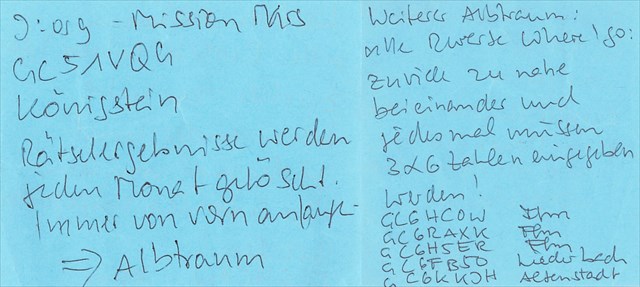 9: org - Mission Mars
GC51VQG
Königstein
Rätselergebnisse werden
jeden Monat gelöscht.
Immer von vorn anfangen
=> Albtraum
Weiterer Albtraum:
alle Reverse Where I go:
zurück zu nahe
beieinander und
jedesmal müssen
3x6 Zahlen eingegeben
werden!
GC6HCOW
GC6RAXK
GC6H5ER
GC6FB50 Liederbach
GC6KKJH Altenstadt